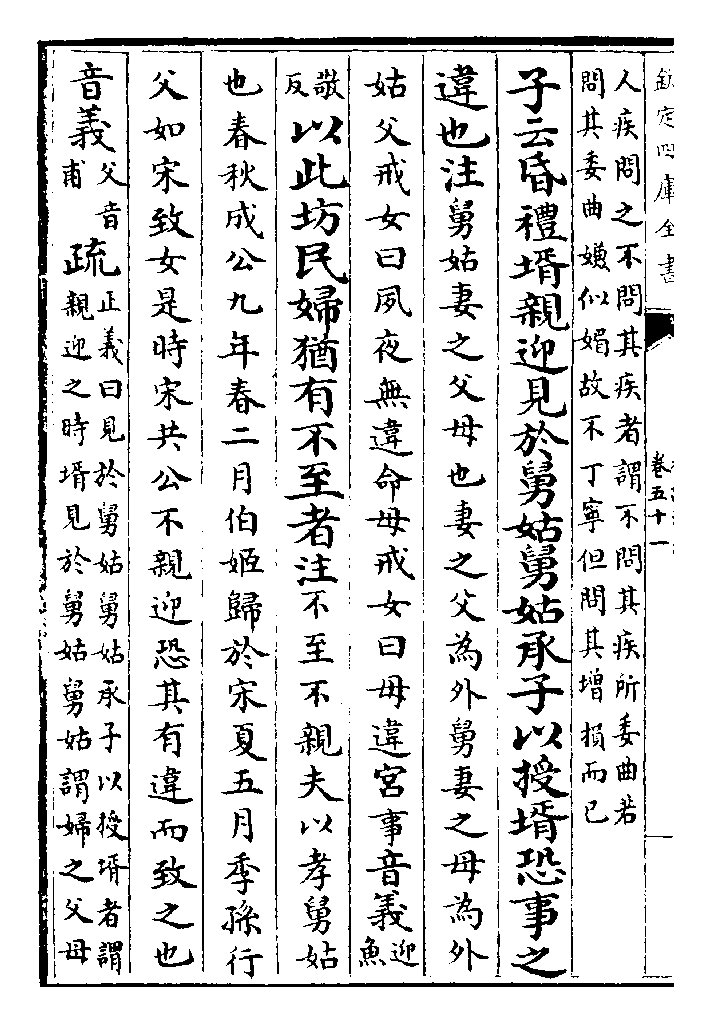 欽定四庫全書
卷五十一
人疾問之不問其疾者謂不問其疾所委曲若
問其委曲嫌似媚故不丁寧但問其增損而已
子云昏禮壻親迎見於舅姑舅姑承子以授壻恐事之
違也注舅姑妻之父母也妻之父為外舅妻之母為外
姑父戒女曰夙夜無違命毋戒女曰毋違宮事音義迎魚
敬反以此坊民婦猶有不至者注不至不親夫以孝舅姑
也春秋成公九年春二月伯姬歸於宋夏五月季孫行
父如宋致女是時宋共公不親迎恐其有違而致之也
音義父音甫疏正義曰見於舅姑舅姑承子以授壻者謂
親迎之時壻見於舅姑舅姑謂婦之父母